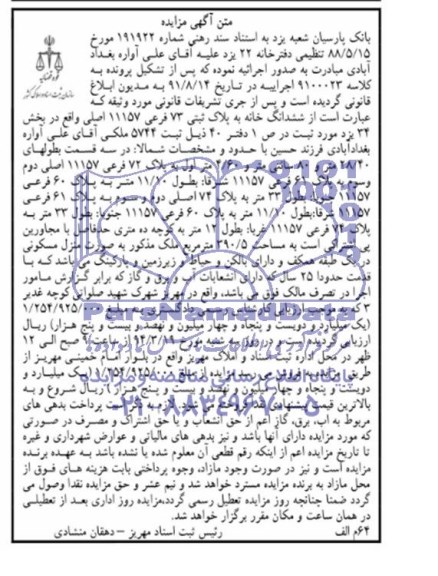 متن آگهی مزایده
بانک پارسیان شعبه یزد به استناد سند رهنی شماره ۱۹۱۹۲۲ مورخ
۸۸/۵/۱۵ تنظیمی دفترخانه ۲۲ یزد علیه آقای علی آواره بغداد
آبادی مبادرت به صدور اجرائیه نموده که پس از تشکیل پرونده به
کلاسه ۹۱۰۰۰۲۳ اجرا در تاریخ ۹۱/۸/۱۴ به مدیون ابلاغ
قانونی گردیده است و پس از جری تشریفات قانونی مورد وثیقه که
عبارت است از ششدانگ خانه به پلاک ثبتی ۷۳ فرعی ۱۱۱۵۷ اصلی واقع در بخش
۳۴ یزد مورد ثبت در ص ۱ دفتر ۴۰ ذیل ثبت ۵۷۴۴ ملکی آقای علی آواره
بغدادآبادی فرزند حسین با حدود و مشخصات شمالا: در سه قسمت بطولهای
اول به پلاک ۷۲ فرعی ۱۱۱۵۷ اصلی دوم
وسوم به پلاک فرعی ۱۱۱۵۷ شرقا: بطول ۱۱/۱۰ متر به پلاک ۶۰ فرعی
۱۱۱۵۷ جنوبا: بطول ۳۳ متر به پلاک ۷۴ اصلی دوم وسوم به پلاک ۶۱ فرعی
۱۱۱۵۷ شرقا:بطول ۱۱/۱۰ متر به پلاک ۶۰ فرعی ۱۱۱۵۷ جنوبا: بطول ۳۳ متر به
پلاک ۷۴ فرعی ۱۱۱۵۷ غربا: بطول ۱۲ متر به کوچه ده متری حدفاصل با مجاورین
اشتراکی است به مساحت ۳۹۰/۵ مترمربع ملک مذکور به صورت منزل مسکونی
در یک طبقه همکف و دارای بالکن و حیاط و زیرزمین و پارکینگ می باشد که با
قدمت حدودا ۲۵ سال که دارای انشعابات آب و برق و گاز که برابر گزارش مامور
اجرا در تصرف مالک فوق می باشد، واقع در مهریز شهرک شهید صلواتی کوچه غدیر
(یک میلیارد و دویست و پنجاه و چهار میلیون و نهصد و بیست و پنج هزار) ریال
ارزیابی گردیده است و در روز شنبه صبح الی ۱۲
ظهر در محل اداره ثبت اسناد و املاک مهریز واقع در بلوار امام خمینی مهریز از
طریق مزایده به فروش می رسد مزایده از مبلغ یک میلیارد و
دویست و پنجاه و چهار میلیون و نهصد و بیست و پنج هزار ریال شروع و به
بالاترین قیمت پرداخت بدهی های
مربوط به آب، برق، گاز اعم از حق انشعاب و یا حق اشتراک و مصرف در صورتی
که مورد مزایده دارای آنها باشد و نیز بدهی های مالیاتی و عوارض شهرداری و غیره
تا تاریخ مزایده اعم از اینکه رقم قطعی آن معلوم شده یا نشده باشد به عهده برنده
مزایده است و نیز در صورت وجود مازاد، وجوه پرداختی بابت هزینه های فوق از
محل مازاد به برنده مزایده مسترد خواهد شد و نیم عشر و حق مزایده نقدا وصول می
گردد ضمنا چنانچه روز مزایده تعطیل رسمی گردد،مزایده روز اداری بعد از تعطیلی
در همان ساعت و مکان مقرر برگزار خواهد شد.
۶۴م الف
رئیس ثبت اسناد مهریز – دهقان منشادی